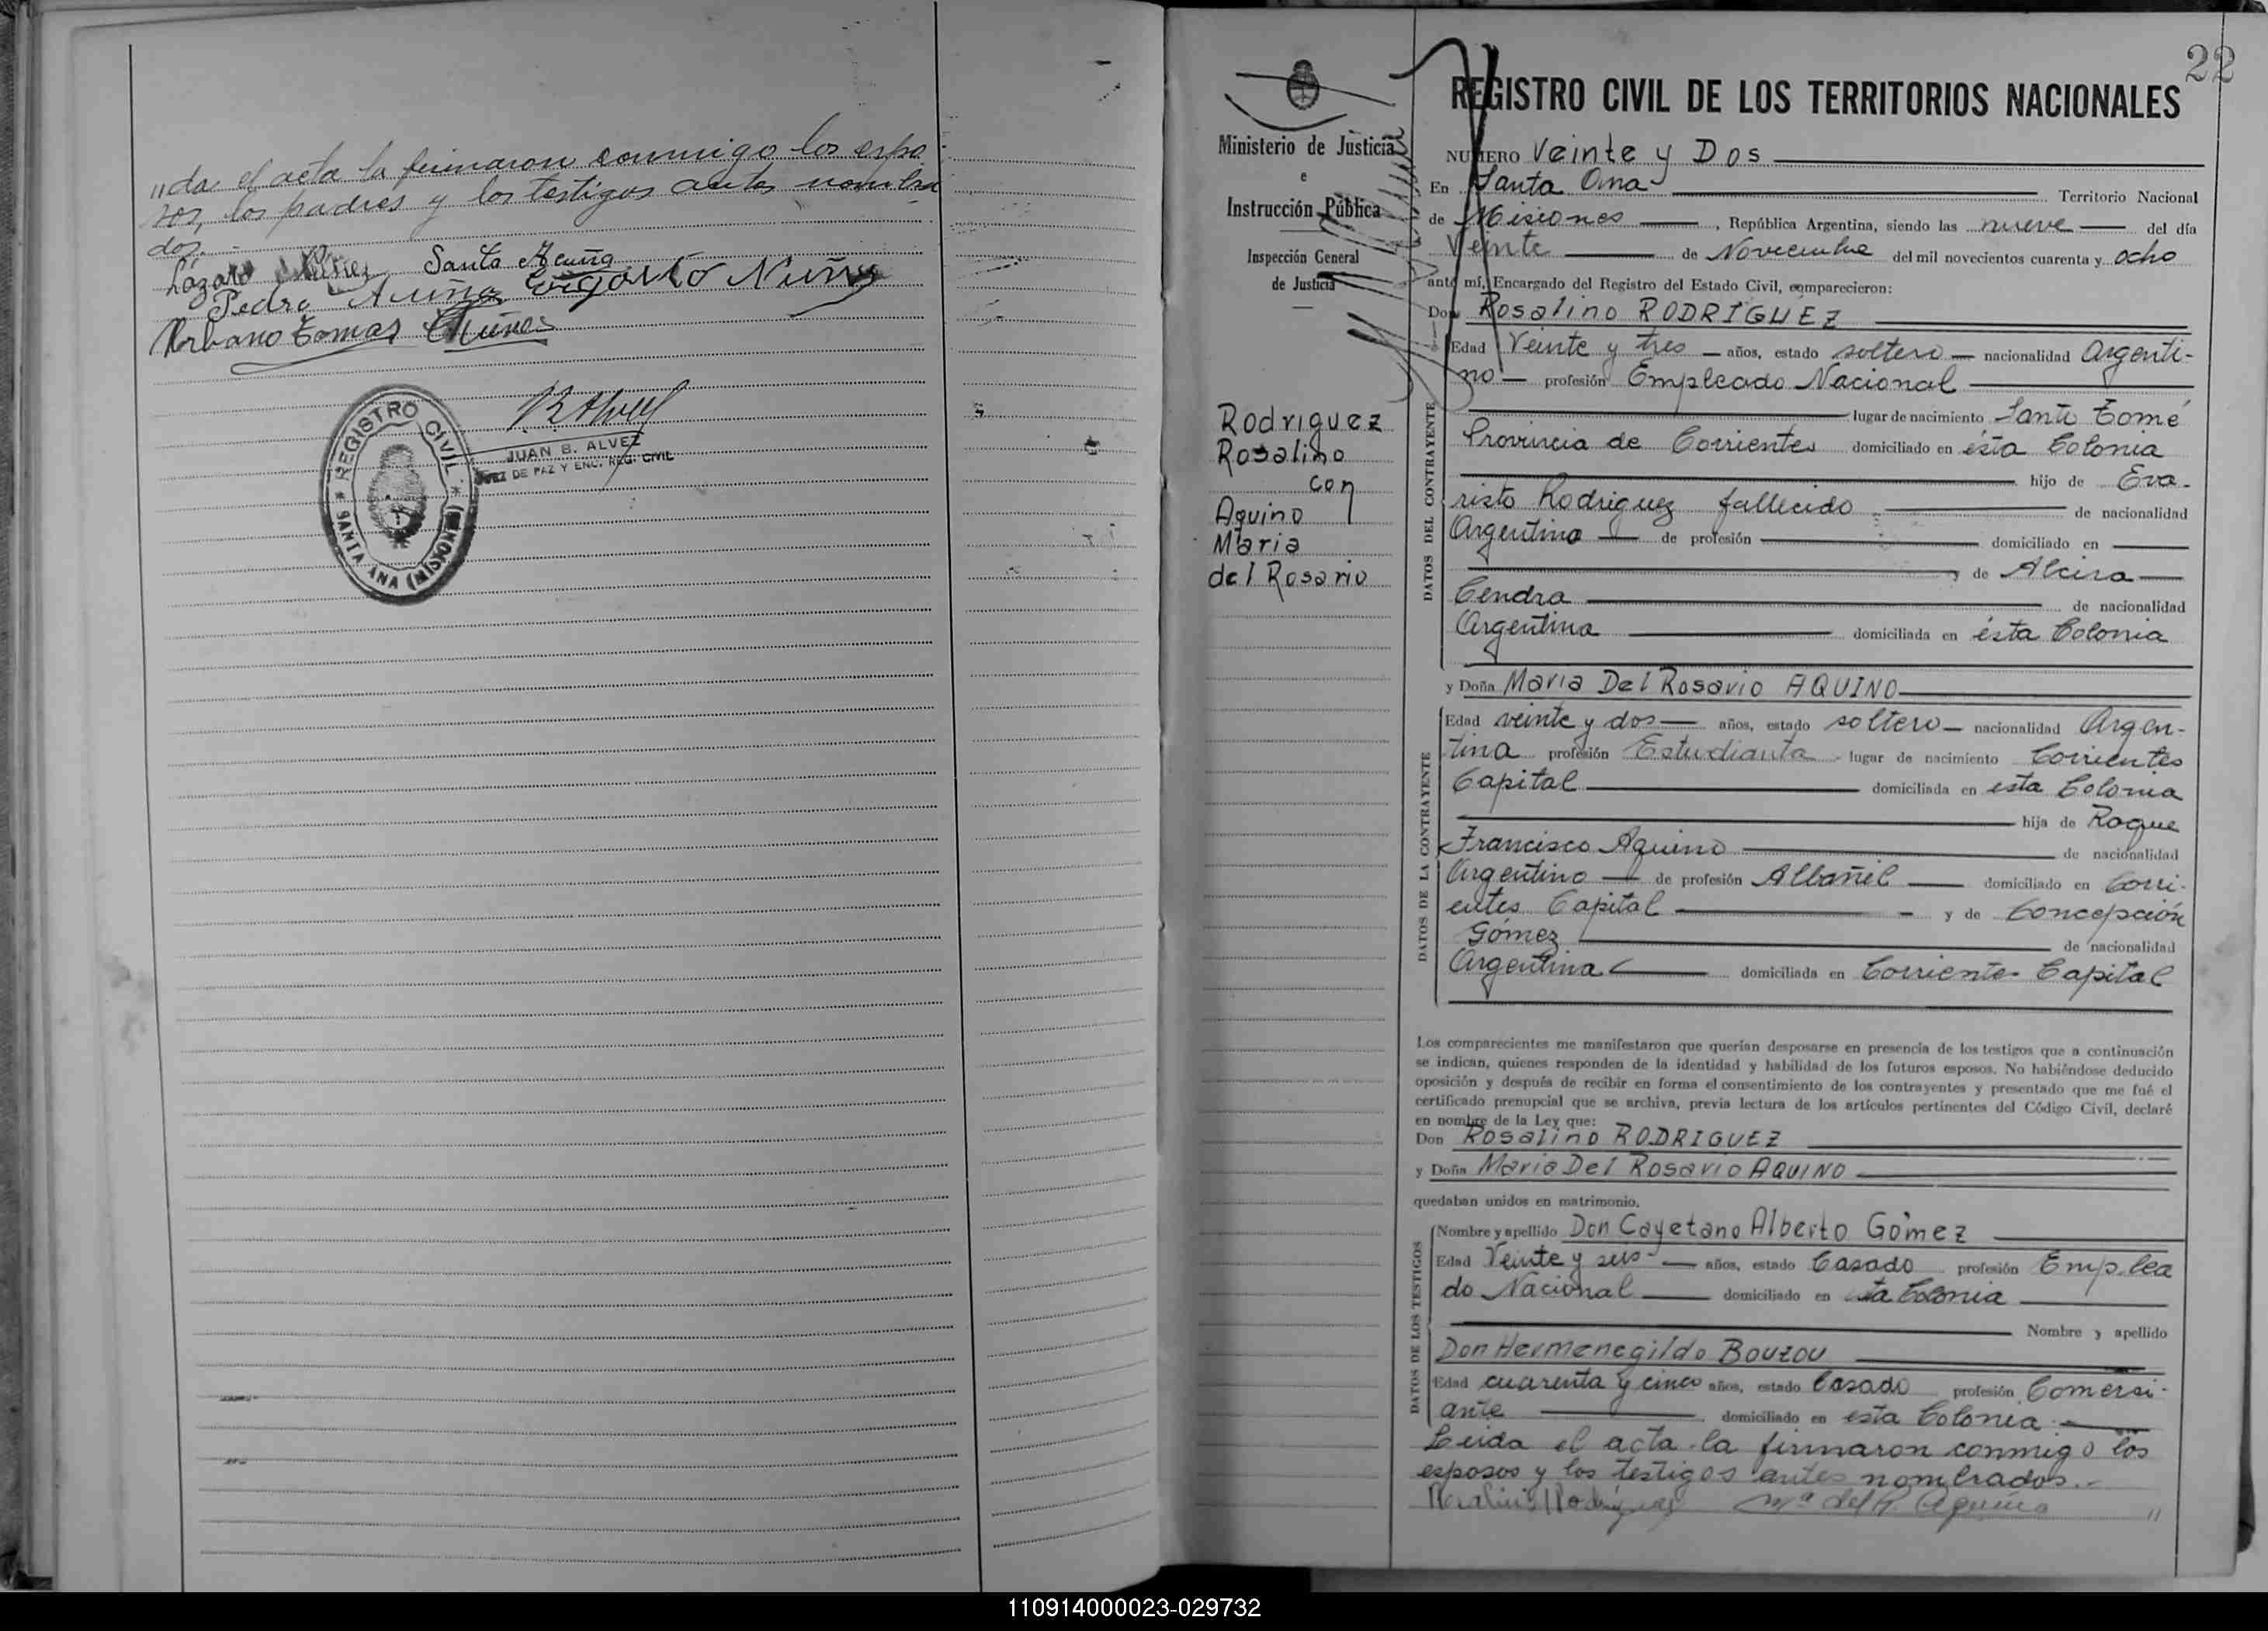 "da el acta la firmaron conmigo los espo
sos, los padres y los testigos antes nombra
dos.-
Lázaro Núñez Santa Acuña
Pedro Acuña Núñez
Urbano Tomas Núñez
REGISTRO CIVIL
SANTA ANA (MISIONES)
JUAN B. ALVEZ
JUEZ DE PAZ Y ENC. REG. CIVIL
22
Ministerio de Justicia
e
Instrucción Pública
Inspección General
de Justicia
Rodriguez
Rosalino
con
Aquino
Maria
del Rosario
REGISTRO CIVIL DE LOS TERRITORIOS NACIONALES
NUMERO Veinte y Dos
En Santa Ana Territorio Nacional
de Misiones, República Argentina, siendo las nueve del día
Veinte de Noviembre del mil novecientos cuarenta y ocho
ante mí, Encargado del Registro del Estado Civil, comparecieron:
Don Rosalino RODRIGUEZ
DATOS DEL CONTRAYENTE
Edad Veinte y tres años, estado soltero nacionalidad Argenti-
no profesión Empleado Nacional
lugar de nacimiento Santo Tomé
Provincia de Corrientes domiciliado en ésta Colonia
hijo de Eva-
risto Rodriguez fallecido de nacionalidad
Argentino de profesión domiciliado en
y de Alcira
Cendra de nacionalidad
Argentina domiciliada en ésta Colonia
y Doña Maria Del Rosario AQUINO
DATOS DE LA CONTRAYENTE
Edad veinte y dos años, estado soltero nacionalidad Argen-
tina profesión Estudianta lugar de nacimiento Corrientes
Capital domiciliada en esta Colonia
hija de Roque
Francisco Aquino de nacionalidad
Argentino de profesión Albañil domiciliado en Corri-
entes Capital y de Concepción
Gómez de nacionalidad
Argentina domiciliada en Corrientes Capital
Los comparecientes me manifestaron que querían desposarse en presencia de los testigos que a continuación
se indican, quienes responden de la identidad y habilidad de los futuros esposos. No habiéndose deducido
oposición y después de recibir en forma el consentimiento de los contrayentes y presentado que me fué el
certificado prenupcial que se archiva, previa lectura de los artículos pertinentes del Código Civil, declaré
en nombre de la Ley que:
Don Rosalino RODRIGUEZ
y Doña Maria Del Rosario AQUINO
quedaban unidos en matrimonio.
DATOS DE LOS TESTIGOS
Nombre y apellido Don Cayetano Alberto Gómez
Edad Veinte y seis años, estado Casado profesión Emplea
do Nacional domiciliado en esta Colonia
Nombre y apellido
Don Hermenegildo Bouzou
Edad cuarenta y cinco años, estado Casado profesión Comersi-
ante domiciliado en esta Colonia.
Leida el acta la firmaron conmigo los
esposos y los testigos antes nombrados.-
Rosalino Rodriguez Mª del R. Aquino "
110914000023-029732